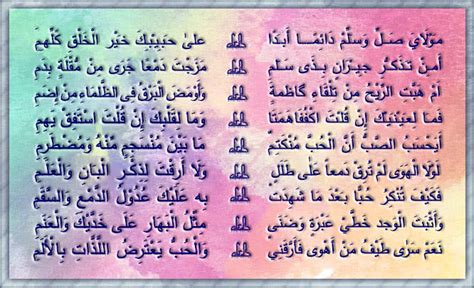 مَوْلَايَ صَلِّ وَسَلِّمْ دَائِمًا أَبَدًا عَلَىٰ حَبِيْبِكَ خَيْرِ الْخَلْقِ كُلِّهِمِ
أَمِنْ تَذَكُّرِ جِيْرَانٍ بِذِي سَلَمِ مَزَجْتَ دَمْعًا جَرَى مِنْ مُقْلَةٍ بِدَمِ
أَمْ هَبَّتِ الرِّيْحُ مِنْ تِلْقَاءِ كَاظِمَةٍ وَأَوْمَضَ الْبَرْقُ فِي الظَّلْمَاءِ مِنْ إِضَمِ
فَمَا لِعَيْنَيْكَ إِنْ قُلْتَ اكْفُفَا هَمَتَا وَمَا لِقَلْبِكَ إِنْ قُلْتَ اسْتَفِقْ يَهِمِ
أَيَحْسَبُ الصَّبُّ أَنَّ الْحُبَّ مُنْكَتِمٌ مَا بَيْنَ مُنْسَجِمٍ مِنْهُ وَمُضْطَرِمِ
لَوْلَا الْهَوَى لَمْ تُرِقْ دَمْعاً عَلَى طَلَلٍ وَلَا أَرِقْتَ لِذِكْرِ الْبَانِ وَالْعَلَمِ
فَكَيْفَ تُنْكِرُ حُبًّا بَعْدَ مَا شَهِدَتْ بِهِ عَلَيْكَ عُدُوْلُ الدَّمْعِ وَالسَّقَمِ
وَأَثْبَتَ الْوَجْدُ خَطَّيْ عَبْرَةٍ وَضَنًى مِثْلَ الْبَهَارِ عَلَى خَدَّيْكَ وَالْعَنَمِ
نَعَمْ سَرَى طَيْفُ مَنْ أَهْوَى فَأَرَّقَنِي وَالْحُبُّ يَعْتَرِضُ اللَّذَّاتِ بِالْأَلَمِ